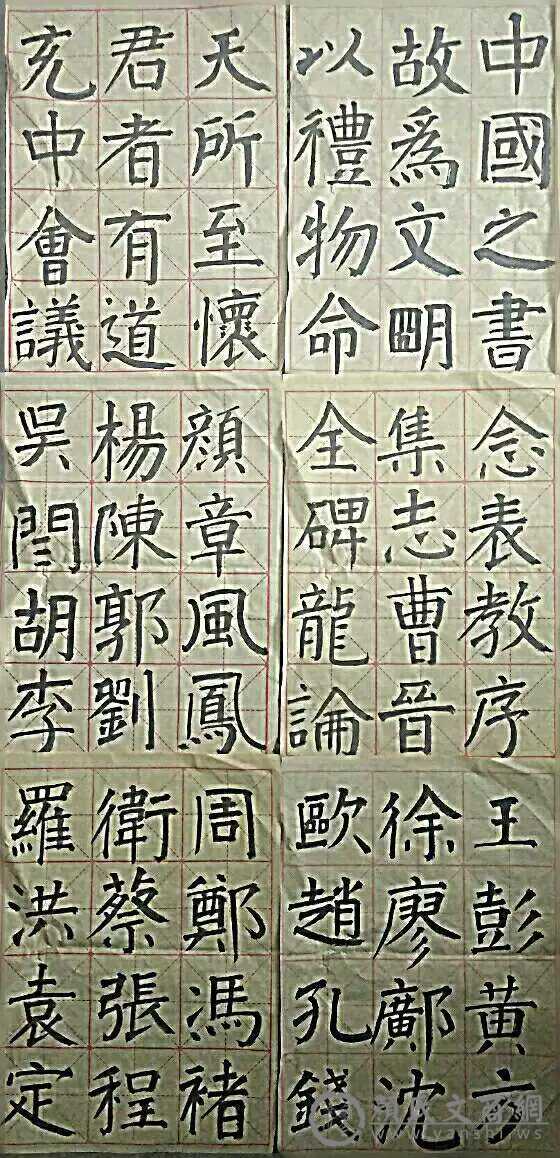 中國之書
故爲文明
以禮物命
天所至懷
君者有道
充中會議
念表教序
集志曹晉
全碑龍論
顔章風鳳
楊陳郭劉
吳閆胡李
王彭黄方
徐廖鄺沈
歐趙孔錢
周鄭馮褚
衛蔡張程
羅洪袁定